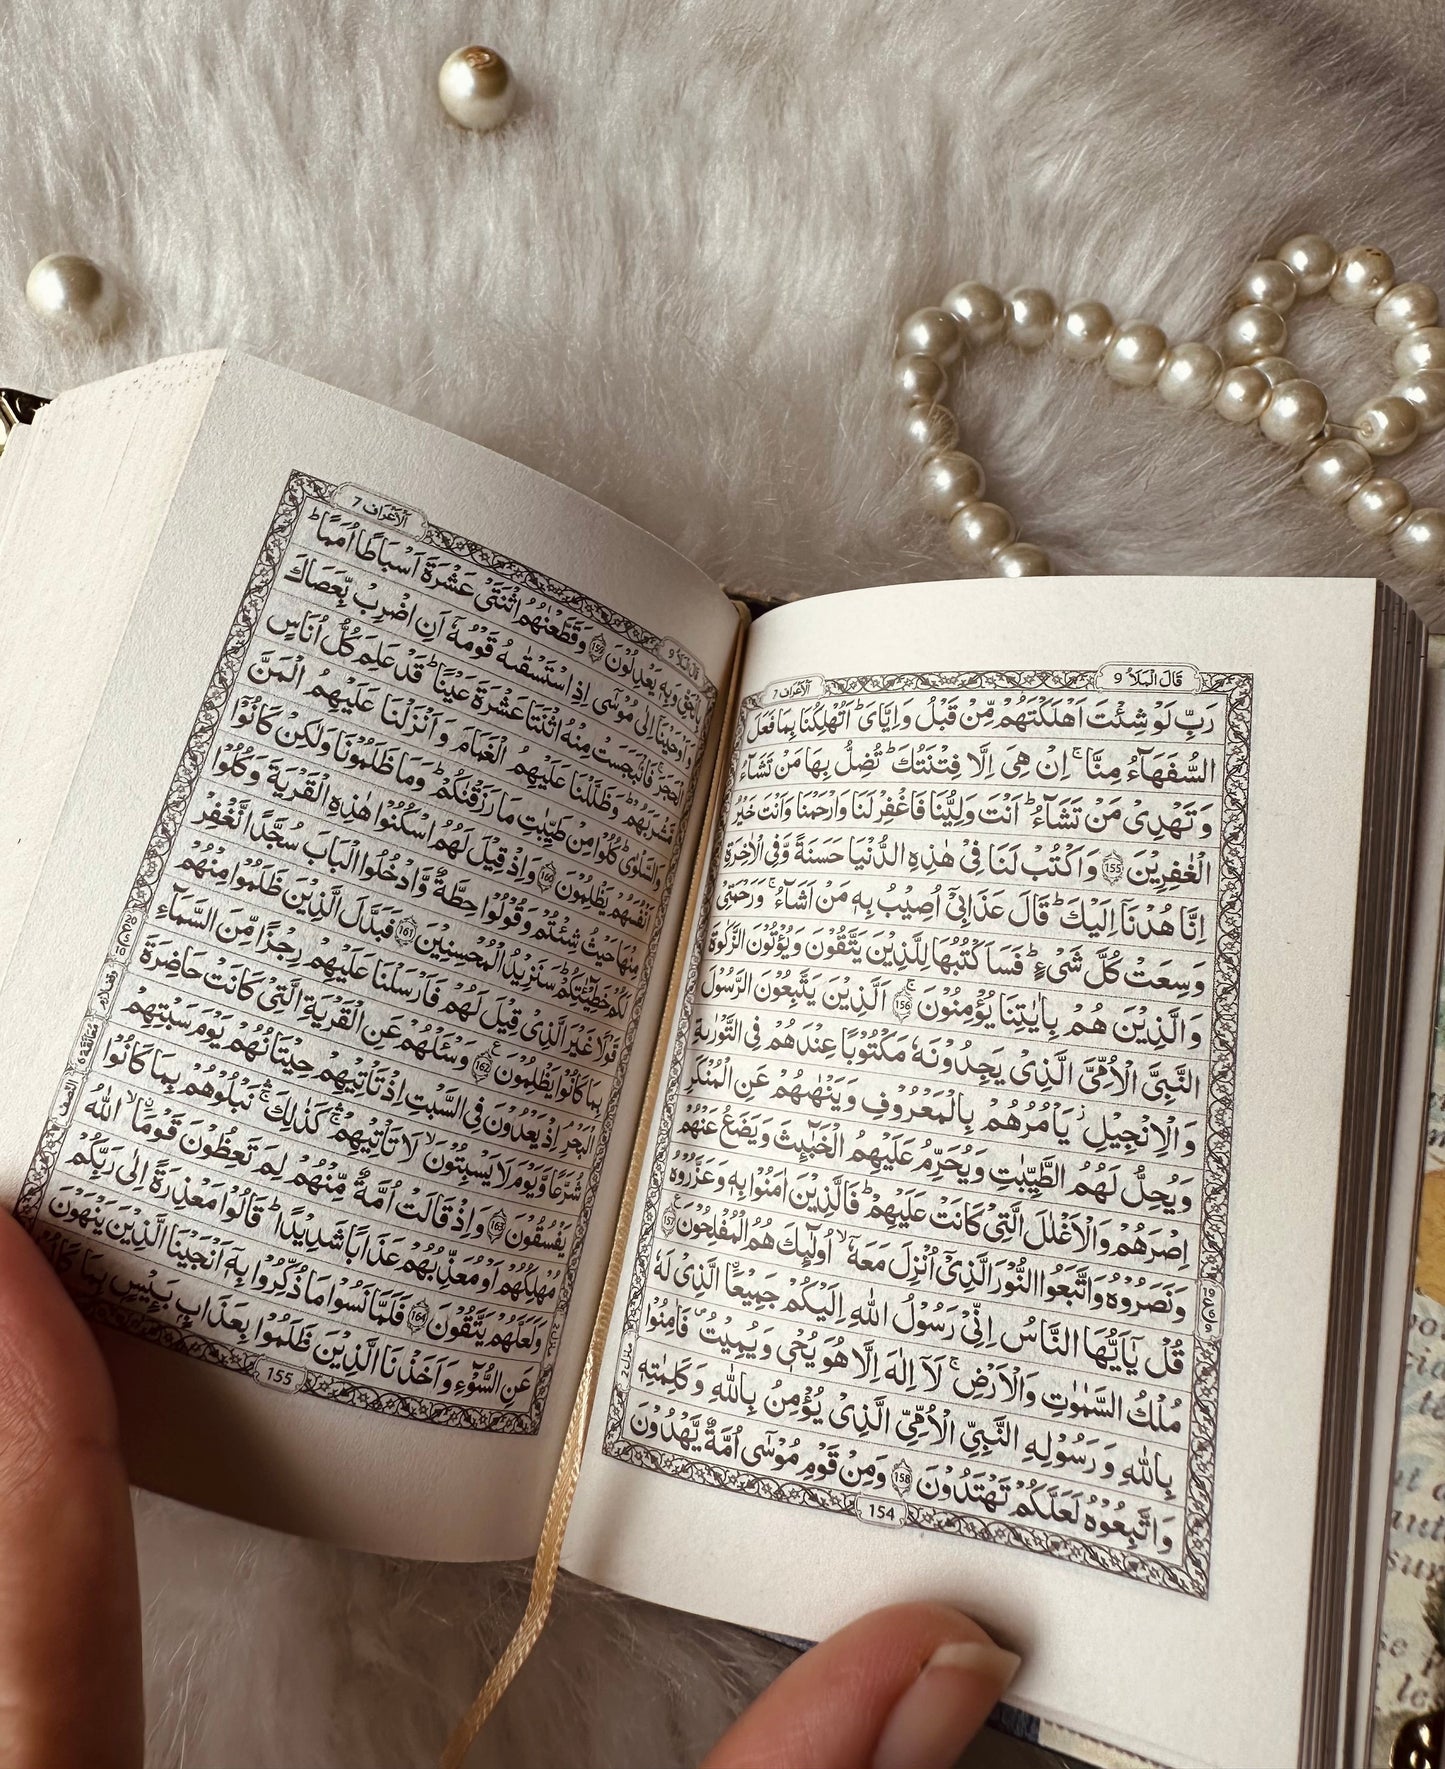 اَلْاَعْرَاف 7 قَالَ الْمَلَاُ 9
رَبِّ لَوْ شِئْتَ اَهْلَكْتَهُمْ مِّنْ قَبْلُ وَاِيَّايَ ؕ اَتُهْلِكُنَا بِمَا فَعَلَ
السُّفَهَآءُ مِنَّا ۚ اِنْ هِيَ اِلَّا فِتْنَتُكَ ؕ تُضِلُّ بِهَا مَنْ تَشَآءُ
وَتَهْدِيْ مَنْ تَشَآءُ ؕ اَنْتَ وَلِيُّنَا فَاغْفِرْ لَنَا وَارْحَمْنَا وَاَنْتَ خَيْرُ
الْغٰفِرِيْنَ 155 وَاكْتُبْ لَنَا فِيْ هٰذِهِ الدُّنْيَا حَسَنَةً وَّفِي الْاٰخِرَةِ
اِنَّا هُدْنَآ اِلَيْكَ ؕ قَالَ عَذَابِيْٓ اُصِيْبُ بِهٖ مَنْ اَشَآءُ ۚ وَرَحْمَتِيْ
وَسِعَتْ كُلَّ شَيْءٍ ؕ فَسَاَكْتُبُهَا لِلَّذِيْنَ يَتَّقُوْنَ وَيُؤْتُوْنَ الزَّكٰوةَ
وَالَّذِيْنَ هُمْ بِاٰيٰتِنَا يُؤْمِنُوْنَ ۚ 156 اَلَّذِيْنَ يَتَّبِعُوْنَ الرَّسُوْلَ
النَّبِيَّ الْاُمِّيَّ الَّذِيْ يَجِدُوْنَهٗ مَكْتُوْبًا عِنْدَهُمْ فِي التَّوْرٰىةِ
وَالْاِنْجِيْلِ ز يَاْمُرُهُمْ بِالْمَعْرُوْفِ وَيَنْهٰىهُمْ عَنِ الْمُنْكَرِ
وَيُحِلُّ لَهُمُ الطَّيِّبٰتِ وَيُحَرِّمُ عَلَيْهِمُ الْخَبٰٓئِثَ وَيَضَعُ عَنْهُمْ
اِصْرَهُمْ وَالْاَغْلٰلَ الَّتِيْ كَانَتْ عَلَيْهِمْ ؕ فَالَّذِيْنَ اٰمَنُوْا بِهٖ وَعَزَّرُوْهُ
وَنَصَرُوْهُ وَاتَّبَعُوا النُّوْرَ الَّذِيْٓ اُنْزِلَ مَعَهٗٓ ۙ اُولٰٓئِكَ هُمُ الْمُفْلِحُوْنَ ع 157
قُلْ يٰٓاَيُّهَا النَّاسُ اِنِّيْ رَسُوْلُ اللّٰهِ اِلَيْكُمْ جَمِيْعَا الَّذِيْ لَهٗ
مُلْكُ السَّمٰوٰتِ وَالْاَرْضِ ۚ لَآ اِلٰهَ اِلَّا هُوَ يُحْيٖ وَيُمِيْتُ فَاٰمِنُوْا
بِاللّٰهِ وَرَسُوْلِهِ النَّبِيِّ الْاُمِّيِّ الَّذِيْ يُؤْمِنُ بِاللّٰهِ وَكَلِمٰتِهٖ
وَاتَّبِعُوْهُ لَعَلَّكُمْ تَهْتَدُوْنَ 158 وَمِنْ قَوْمِ مُوْسٰٓى اُمَّةٌ يَّهْدُوْنَ
154
منزل 2
قَالَ الْمَلَاُ 9 اَلْاَعْرَاف 7
بِالْحَقِّ وَبِهٖ يَعْدِلُوْنَ 159 وَقَطَّعْنٰهُمُ اثْنَتَيْ عَشْرَةَ اَسْبَاطًا اُمَمًا ؕ
وَاَوْحَيْنَآ اِلٰى مُوْسٰٓى اِذِ اسْتَسْقٰىهُ قَوْمُهٗٓ اَنِ اضْرِبْ بِّعَصَاكَ
الْحَجَرَ ۚ فَانْۢبَجَسَتْ مِنْهُ اثْنَتَا عَشْرَةَ عَيْنًا ؕ قَدْ عَلِمَ كُلُّ اُنَاسٍ
مَّشْرَبَهُمْ ؕ وَظَلَّلْنَا عَلَيْهِمُ الْغَمَامَ وَاَنْزَلْنَا عَلَيْهِمُ الْمَنَّ
وَالسَّلْوٰى ؕ كُلُوْا مِنْ طَيِّبٰتِ مَا رَزَقْنٰكُمْ ؕ وَمَا ظَلَمُوْنَا وَلٰكِنْ كَانُوْٓا
اَنْفُسَهُمْ يَظْلِمُوْنَ 160 وَاِذْ قِيْلَ لَهُمُ اسْكُنُوْا هٰذِهِ الْقَرْيَةَ وَكُلُوْا
مِنْهَا حَيْثُ شِئْتُمْ وَقُوْلُوْا حِطَّةٌ وَّادْخُلُوا الْبَابَ سُجَّدًا نَّغْفِرْ
لَكُمْ خَطِيْٓئٰتِكُمْ ؕ سَنَزِيْدُ الْمُحْسِنِيْنَ 161 فَبَدَّلَ الَّذِيْنَ ظَلَمُوْا مِنْهُمْ
قَوْلًا غَيْرَ الَّذِيْ قِيْلَ لَهُمْ فَاَرْسَلْنَا عَلَيْهِمْ رِجْزًا مِّنَ السَّمَآءِ
بِمَا كَانُوْا يَظْلِمُوْنَ ع 162 وَسْـَٔلْهُمْ عَنِ الْقَرْيَةِ الَّتِيْ كَانَتْ حَاضِرَةَ
الْبَحْرِ اِذْ يَعْدُوْنَ فِي السَّبْتِ اِذْ تَاْتِيْهِمْ حِيْتَانُهُمْ يَوْمَ سَبْتِهِمْ
شُرَّعًا وَّيَوْمَ لَا يَسْبِتُوْنَ ۙ لَا تَاْتِيْهِمْ ۛ كَذٰلِكَ ۛ نَبْلُوْهُمْ بِمَا كَانُوْا
يَفْسُقُوْنَ 163 وَاِذْ قَالَتْ اُمَّةٌ مِّنْهُمْ لِمَ تَعِظُوْنَ قَوْمَا ۙ اللّٰهُ
مُهْلِكُهُمْ اَوْ مُعَذِّبُهُمْ عَذَابًا شَدِيْدًا ؕ قَالُوْا مَعْذِرَةً اِلٰى رَبِّكُمْ
وَلَعَلَّهُمْ يَتَّقُوْنَ 164 فَلَمَّا نَسُوْا مَا ذُكِّرُوْا بِهٖٓ اَنْجَيْنَا الَّذِيْنَ يَنْهَوْنَ
عَنِ السُّوْٓءِ وَاَخَذْنَا الَّذِيْنَ ظَلَمُوْا بِعَذَابٍ بَئِيْسٍ بِمَا كَانُوْا
155